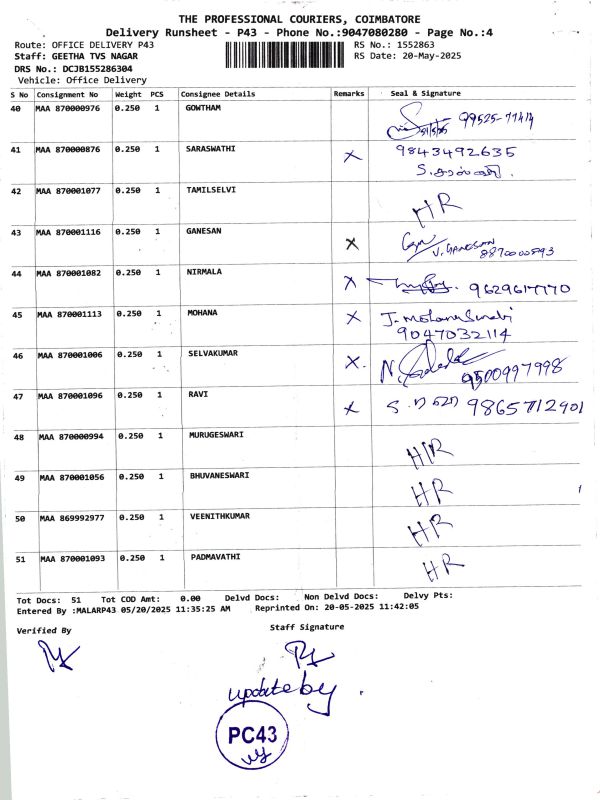 THE PROFESSIONAL COURIERS, COIMBATORE
Delivery Runsheet - P43 - Phone No.:9047080280 - Page No.:4
Route: OFFICE DELIVERY P43 RS No.: 1552863
Staff: GEETHA TVS NAGAR RS Date: 20-May-2025
DRS No.: DCJB155286304
Vehicle: Office Delivery
S No Consignment No Weight PCS Consignee Details Remarks Seal & Signature
40 MAA 870000976 0.250 1 GOWTHAM 99525-77414
41 MAA 870000876 0.250 1 SARASWATHI X 9843492635
S.சரஸ்வதி.
42 MAA 870001077 0.250 1 TAMILSELVI HR
43 MAA 870001116 0.250 1 GANESAN X V. GANESAN
8870000593
44 MAA 870001082 0.250 1 NIRMALA X 9629617170
45 MAA 870001113 0.250 1 MOHANA X J. Mohana
9047032114
46 MAA 870001006 0.250 1 SELVAKUMAR X. 9500997998
47 MAA 870001096 0.250 1 RAVI X 9865712901
48 MAA 870000994 0.250 1 MURUGESWARI HR
49 MAA 870001056 0.250 1 BHUVANESWARI HR
50 MAA 869992977 0.250 1 VEENITHKUMAR HR
51 MAA 870001093 0.250 1 PADMAVATHI HR
Tot Docs: 51 Tot COD Amt: 0.00 Delvd Docs: Non Delvd Docs: Delvy Pts:
Entered By :MALARP43 05/20/2025 11:35:25 AM Reprinted On: 20-05-2025 11:42:05
Verified By Staff Signature
update by
PC43